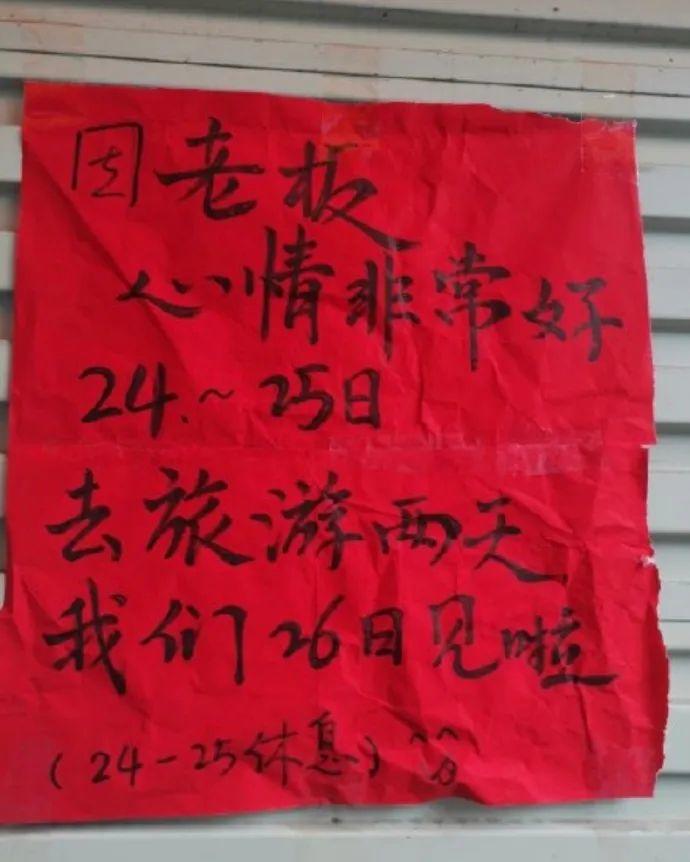 因老板
心情非常好
24.~25日
去旅游两天
我们26日见啦
(24-25休息)